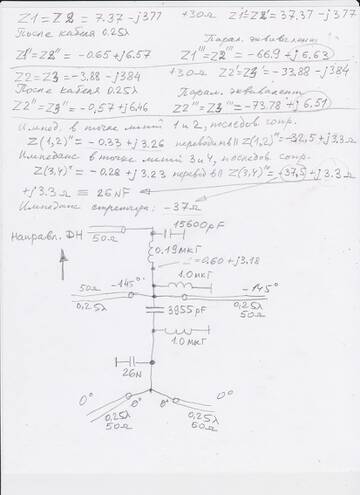 Z1 = Z2 = 7.37 - j377 +30Ω Z1'=Z2'= 37.37 - j377
После кабеля 0.25λ Парал. эквивалент
Z1''=Z2'' = -0.65 + j6.57 Z1'''=Z2''' = -66.9 + j6.63
Z2=Z3 = -3.88 - j384 +30Ω Z2'=Z3' = -33.88 - j384
После кабеля 0.25λ Парал. эквивалент
Z2''=Z3'' = -0,57 + j6.46 Z2'''=Z3''' = -73.78 + j6.51
Импед. в точке линий 1 и 2, последов. сопр.
Z(1,2)'' = -0.33 + j3.26 перевод в II Z(1,2)''' = -32,5 + j3.3Ω
Импеданс в точке линий 3 и 4, последов. сопр.
Z(3,4)'' = -0.28 + j3.23 перевод в II Z(3,4)''' = -37,5 + j3.3Ω
+j3.3Ω ≡ 26NF
Импеданс -37Ω
Направл. ДН 50Ω 15600pF
0.19мкГ
Z=0.60 + j3.18
1.0мкГ
50Ω -145° -145°
0,25λ 0,25λ
50Ω
3955pF
1.0мкГ
26N
0° 0°
0° 0°
0.25λ 0.25λ
50Ω 50Ω